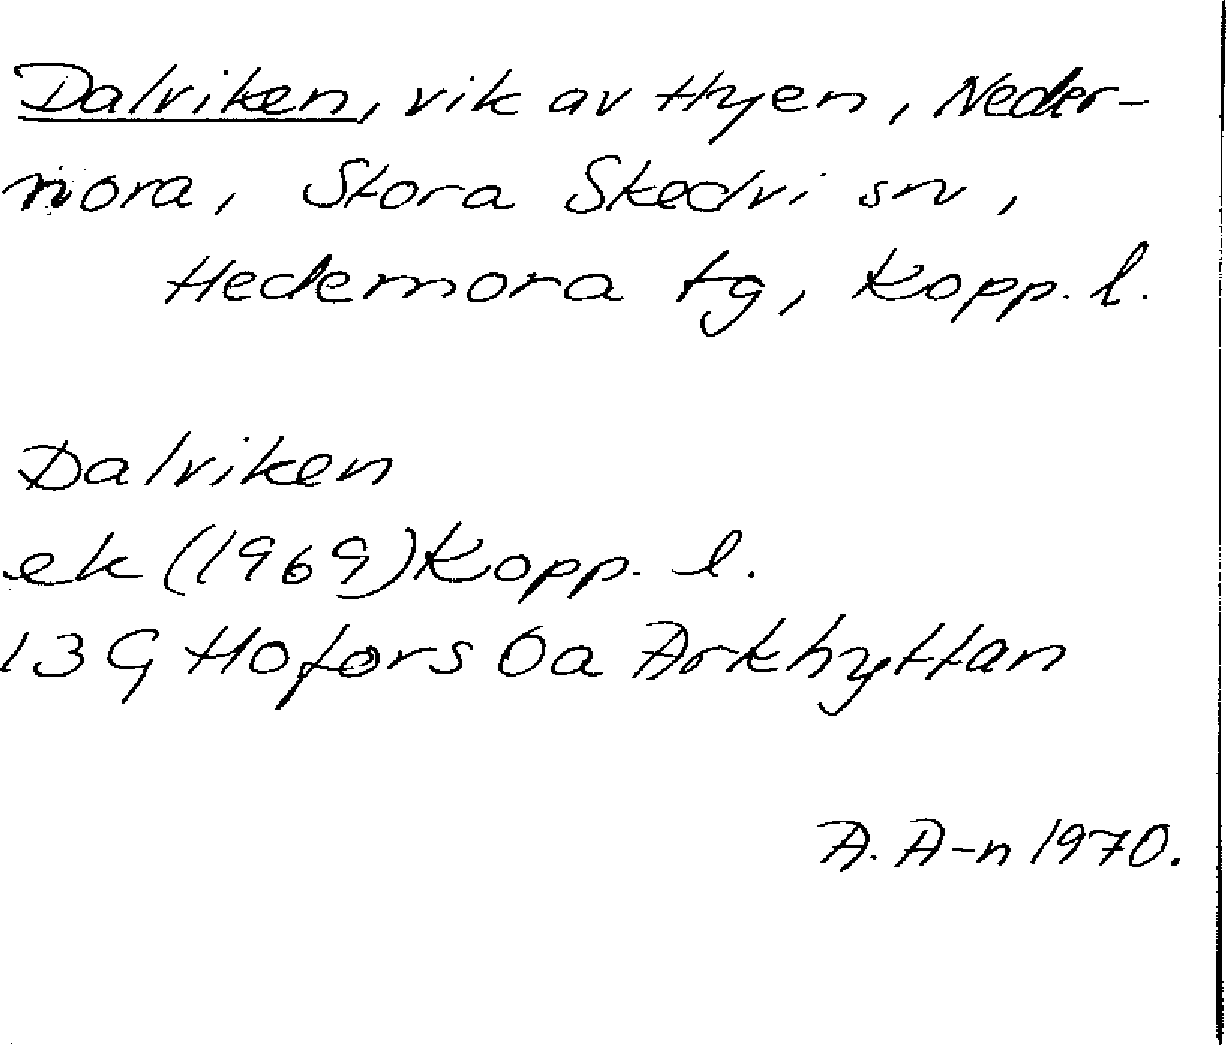 Dalviken, vik av Hyen, Neder-
mora, Stora Skedvi sn,
Hedemora tg, Kopp. l.
Dalviken
ek (1969) Kopp. l.
13 G Hofors 0a Arkhyttan
A. A-n 1970.